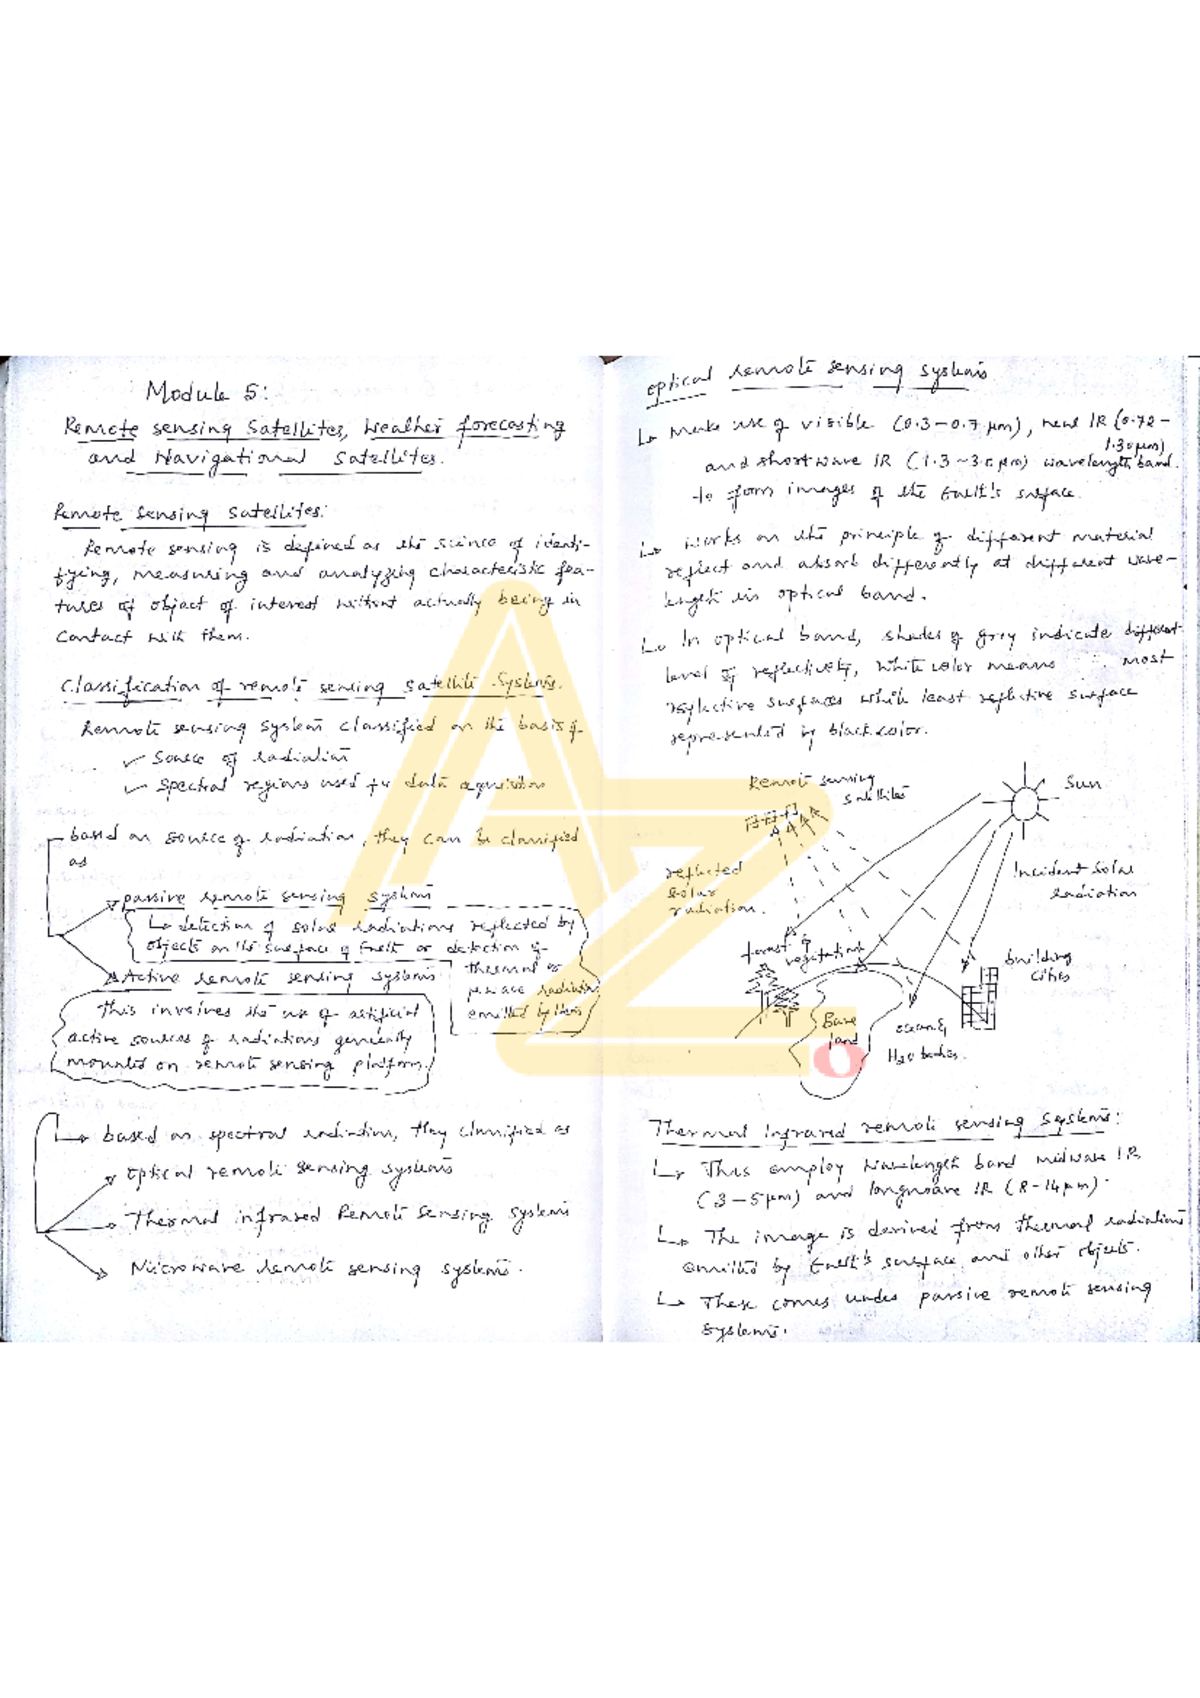 Module 5:
Remote sensing Satellites, Weather forecasting
and Navigational Satellites.
Remote Sensing Satellites:
Remote sensing is defined as the science of identi-
fying, measuring and analyzing characteristic fea-
tures of object of interest without actually being in
Contact with them.
Classification of remote sensing satellite Systems.
Remote sensing system classified on the basis of
✓ Source of radiation
✓ Spectral regions used for data acquisition
based on source of radiation, they can be classified
as
passive remote sensing systems
detection of solar radiations reflected by
objects on the surface of Earth or detection of
thermal or
μwave radiation
emitted by them
Active remote sensing systems
this involves the use of artificial
active sources of radiations generally
mounted on remote sensing platform
based on spectral radiation, they classified as
optical remote sensing systems
Thermal infrared Remote Sensing systems
Microwave remote sensing systems.
optical remote sensing systems
make use of visible (0.3-0.7 μm), near IR (0.72-
1.30 μm)
and shortwave IR (1.3-3.0 μm) wavelength band.
to form images of the Earth's surface.
Works on the principle of different material
reflect and absorb differently at different wave-
length in optical band.
In optical band, shades of grey indicate different
level of reflectivity, white color means most
reflective surfaces while least reflective surface
represented by black color.
Remote sensing
satellites
Sun
reflected
solar
radiation.
Incident Solar
radiation
forest &
vegetation
building
cities
Bare
land
ocean &
H2O bodies.
Thermal Infrared remote sensing Systems:
This employ wavelength band midwave IR
(3-5μm) and longwave IR (8-14μm).
The image is derived from thermal radiations
emitted by Earth's surface and other objects.
These comes under passive remote sensing
systems.
AZ
O